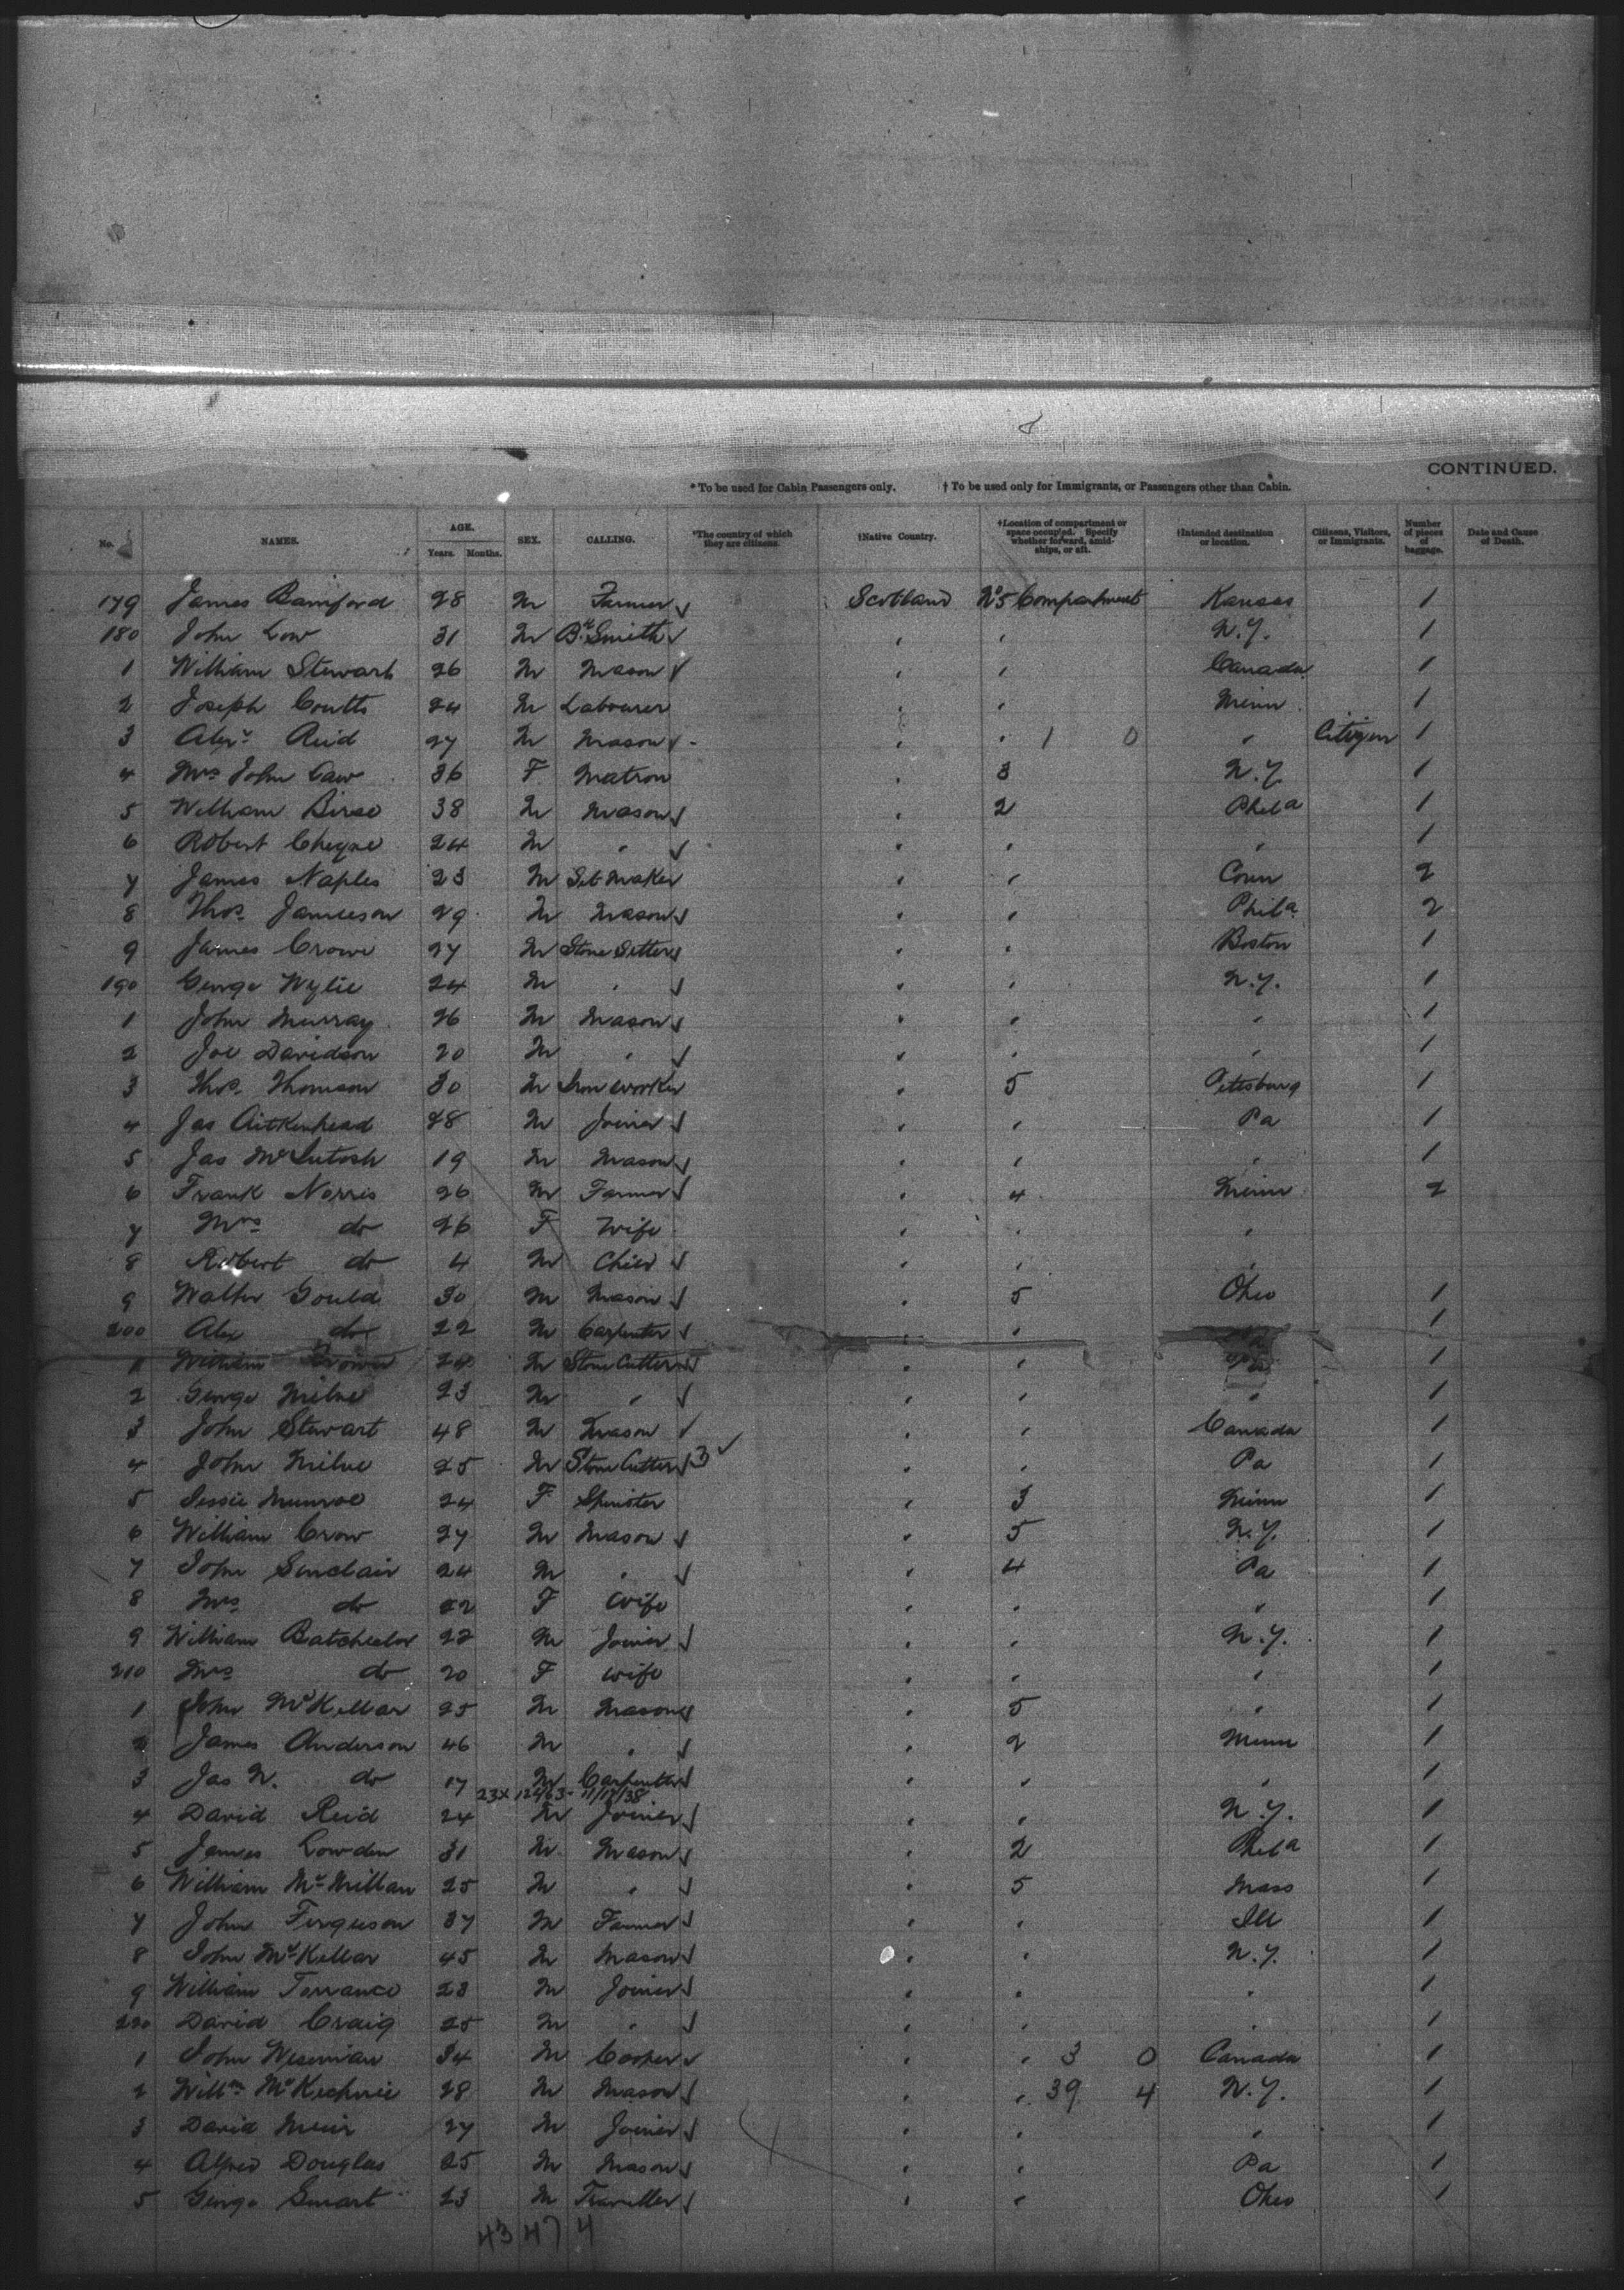 CONTINUED.
* To be used for Cabin Passengers only. † To be used only for Immigrants, or Passengers other than Cabin.
No. NAMES. AGE. Years. Months. SEX. CALLING. *The country of which they are citizens. †Native Country. †Location of compartment or space occupied. Specify whether forward, amidships, or aft. †Intended destination or location. Citizens, Visitors, or Immigrants. Number of pieces of baggage. Date and Cause of Death.
179 James Bamford 28 M Farmer Scotland No 5 Compartment Kansas 1
180 John Low 31 M Bk Smith " " N.Y. 1
1 William Stewart 26 M Mason " " Canada 1
2 Joseph Coutts 24 M Labourer " " Minn 1
3 Alexr Reid 27 M Mason " " 1 0 " Citizen 1
4 Mrs John Law 36 F Matron " 3 N.Y. 1
5 William Birse 38 M Mason " 2 Phila 1
6 Robert Cheyne 24 M " " " " 1
7 James Naples 23 M Set Maker " " Conn 2
8 Thos. Jamieson 29 M Mason " " Phila 2
9 James Crowe 27 M Stone Setter " " Boston 1
190 George Wylie 24 M " " " N.Y. 1
1 John Murray 26 M Mason " " " 1
2 Joe Davidson 20 M " " " " 1
3 Thos. Thomson 30 M Iron worker " 5 Pittsburg 1
4 Jas Aitkenhead 28 M Joiner " " Pa 1
5 Jas McIntosh 19 M Mason " " " 1
6 Frank Norris 26 M Farmer " 4 Minn 2
7 Mrs do 26 F Wife " " "
8 Robert do 4 M Child " " "
9 Walter Gould 30 M Mason " 5 Ohio 1
200 Alex do 22 M Carpenter " " 1
1 William 24 M Stone Cutter " " 1
2 George Milne 23 M " " " " 1
3 John Stewart 48 M Mason " " Canada 1
4 John Milne 25 M Stone Cutter 3 " " Pa 1
5 Jessie Munroe 24 F Spinster " 3 Minn 1
6 William Crow 27 M Mason " 5 N.Y. 1
7 John Sinclair 24 M " " 4 Pa 1
8 Mrs do 22 F Wife " " " 1
9 William Batchelor 22 M Joiner " " N.Y. 1
210 Mrs do 20 F Wife " " " 1
1 John McKellar 25 M Mason " 5 " 1
2 James Anderson 46 M " " 2 Minn 1
3 Jas N. do 17 M Carpenter " " " 1
4 David Reid 24 M Joiner " " N.Y. 1
5 James Lowden 31 M Mason " 2 Phila 1
6 William McMillan 25 M " " 5 Mass 1
7 John Ferguson 37 M Farmer " " Ill 1
8 John McKellar 45 M Mason " " N.Y. 1
9 William Torrance 23 M Joiner " " " 1
220 David Craig 25 M " " " " 1
1 John Wiseman 34 M Cooper " " 3 0 Canada 1
2 Willm McKechnie 28 M Mason " " 39 4 N.Y. 1
3 David Muir 27 M Joiner " " " 1
4 Alfred Douglas 25 M Mason " " Pa 1
5 George Smart 23 M Traveller " " Ohio 1
43 47 4